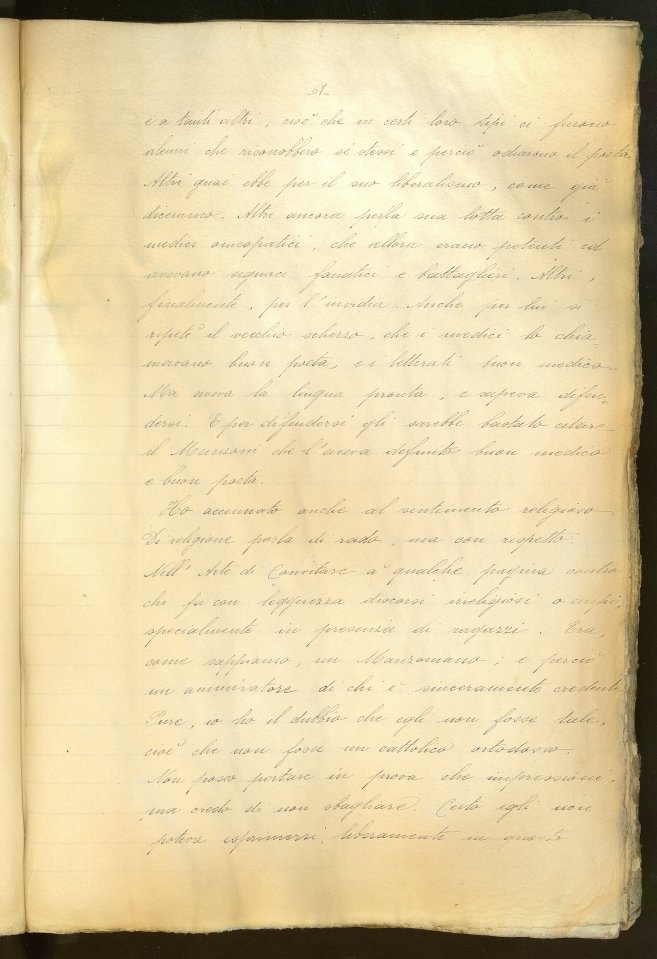 -67-
e a tanti altri, cioè che in certi loro tipi ci furono
alcuni che riconobbero sé stessi e perciò odiarono il poeta.
Altri guai ebbe per il suo liberalismo, come già
dicemmo. Altri ancora per la sua lotta contro i
medici omeopatici, che allora erano potenti ed
avevano seguaci fanatici e battaglieri. Altri,
finalmente, per l'invidia. Anche per lui si
ripetè il vecchio scherzo, che i medici lo chia-
mavano buon poeta, e i letterati buon medico.
Ma aveva la lingua pronta, e sapeva difen-
dersi. E per difendersi gli sarebbe bastato citare
il Manzoni che l'aveva definito buon medico
e buon poeta.
Ho accennato anche al sentimento religioso
Di religione parla di rado, ma con rispetto
Nell'Arte di Convitare à qualche pagina contro
chi fa con leggerezza discorsi irreligiosi o empi,
specialmente in presenza di ragazzi. Era,
come sappiamo, un Manzoniano; e perciò
un ammiratore di chi è sinceramente credente
Pure, io ho il dubbio che egli non fosse tale,
cioè che non fosse un cattolico ortodosso.
Non posso portare in prova che impressioni,
ma credo di non sbagliare. Certo egli non
poteva esprimersi liberamente in questo